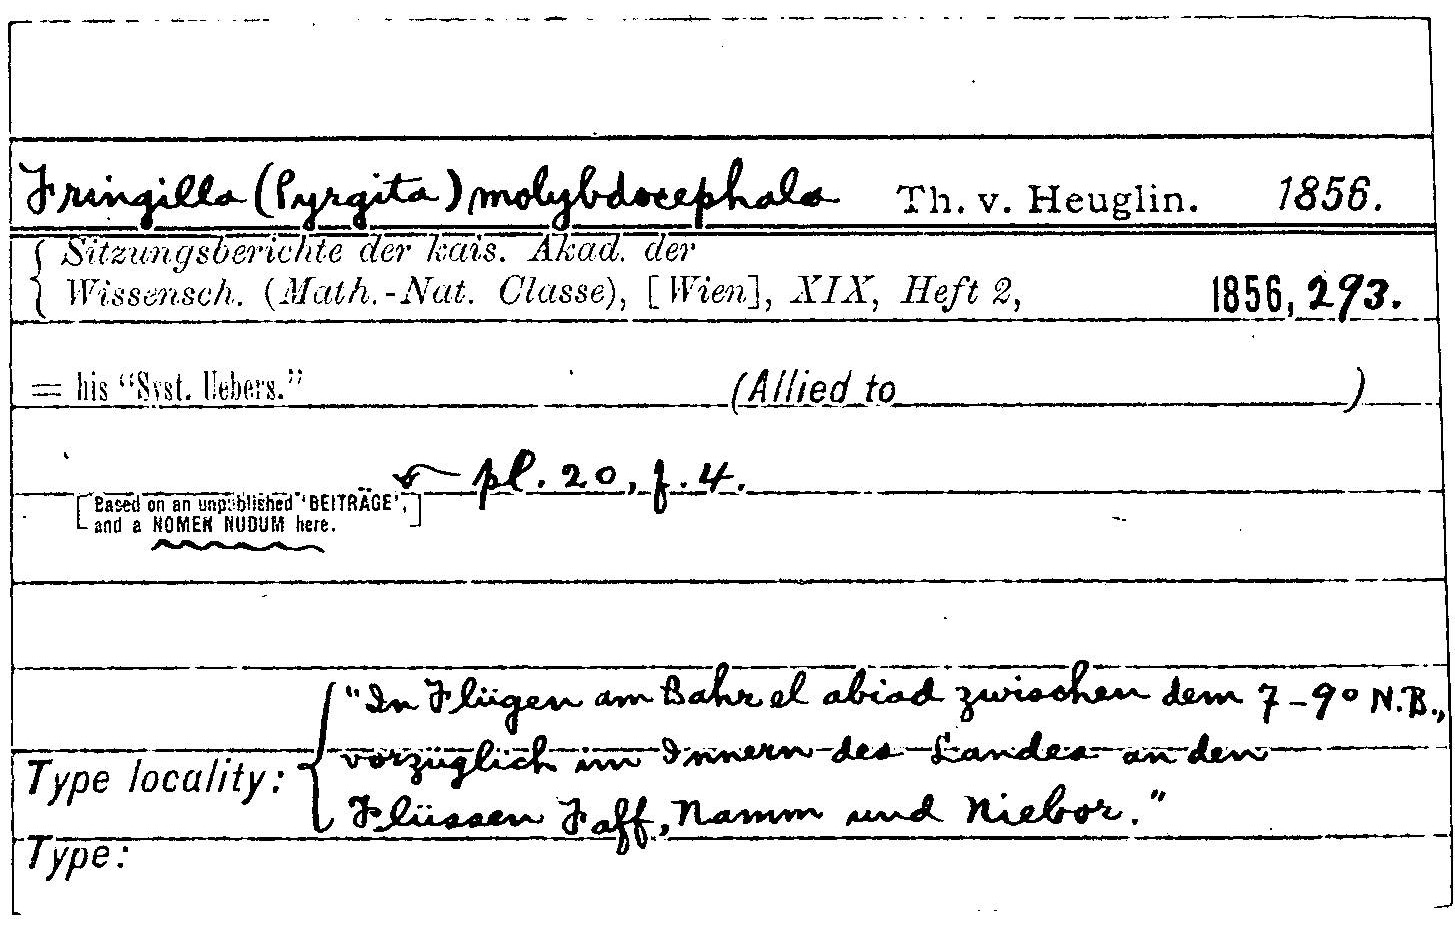 Fringilla (Pyrgita) molybdocephala Th. v. Heuglin. 1856.
Sitzungsberichte der kais. Akad. der
Wissensch. (Math.-Nat. Classe), [Wien], XIX, Heft 2, 1856, 293.
= his "Syst. Uebers." (Allied to )
pl. 20, f. 4.
[Based on an unpublished 'BEITRÄGE',
and a NOMEN NUDUM here.]
"In Flügen am Bahr el abiad zwischen dem 7-9° N.B.,
vorzüglich im Innern des Landes an den
Type locality:
Flüssen Faff, Namm und Niebor."
Type: